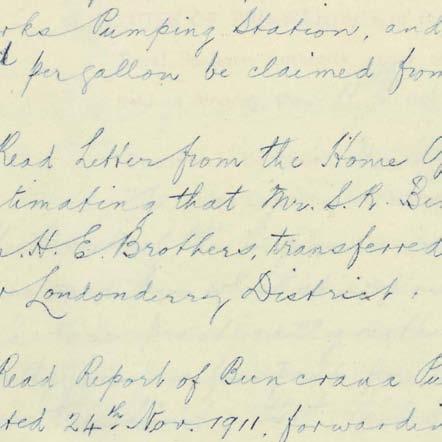 rks Pumping Station, and
d per gallon be claimed from
Read Letter from the Home O
timating that Mr. S. R. Be
. H. E. Brothers, transferred
Londonderry District.
Read Report of Buncrana Pu
ted 24th Nov. 1911, forwardin